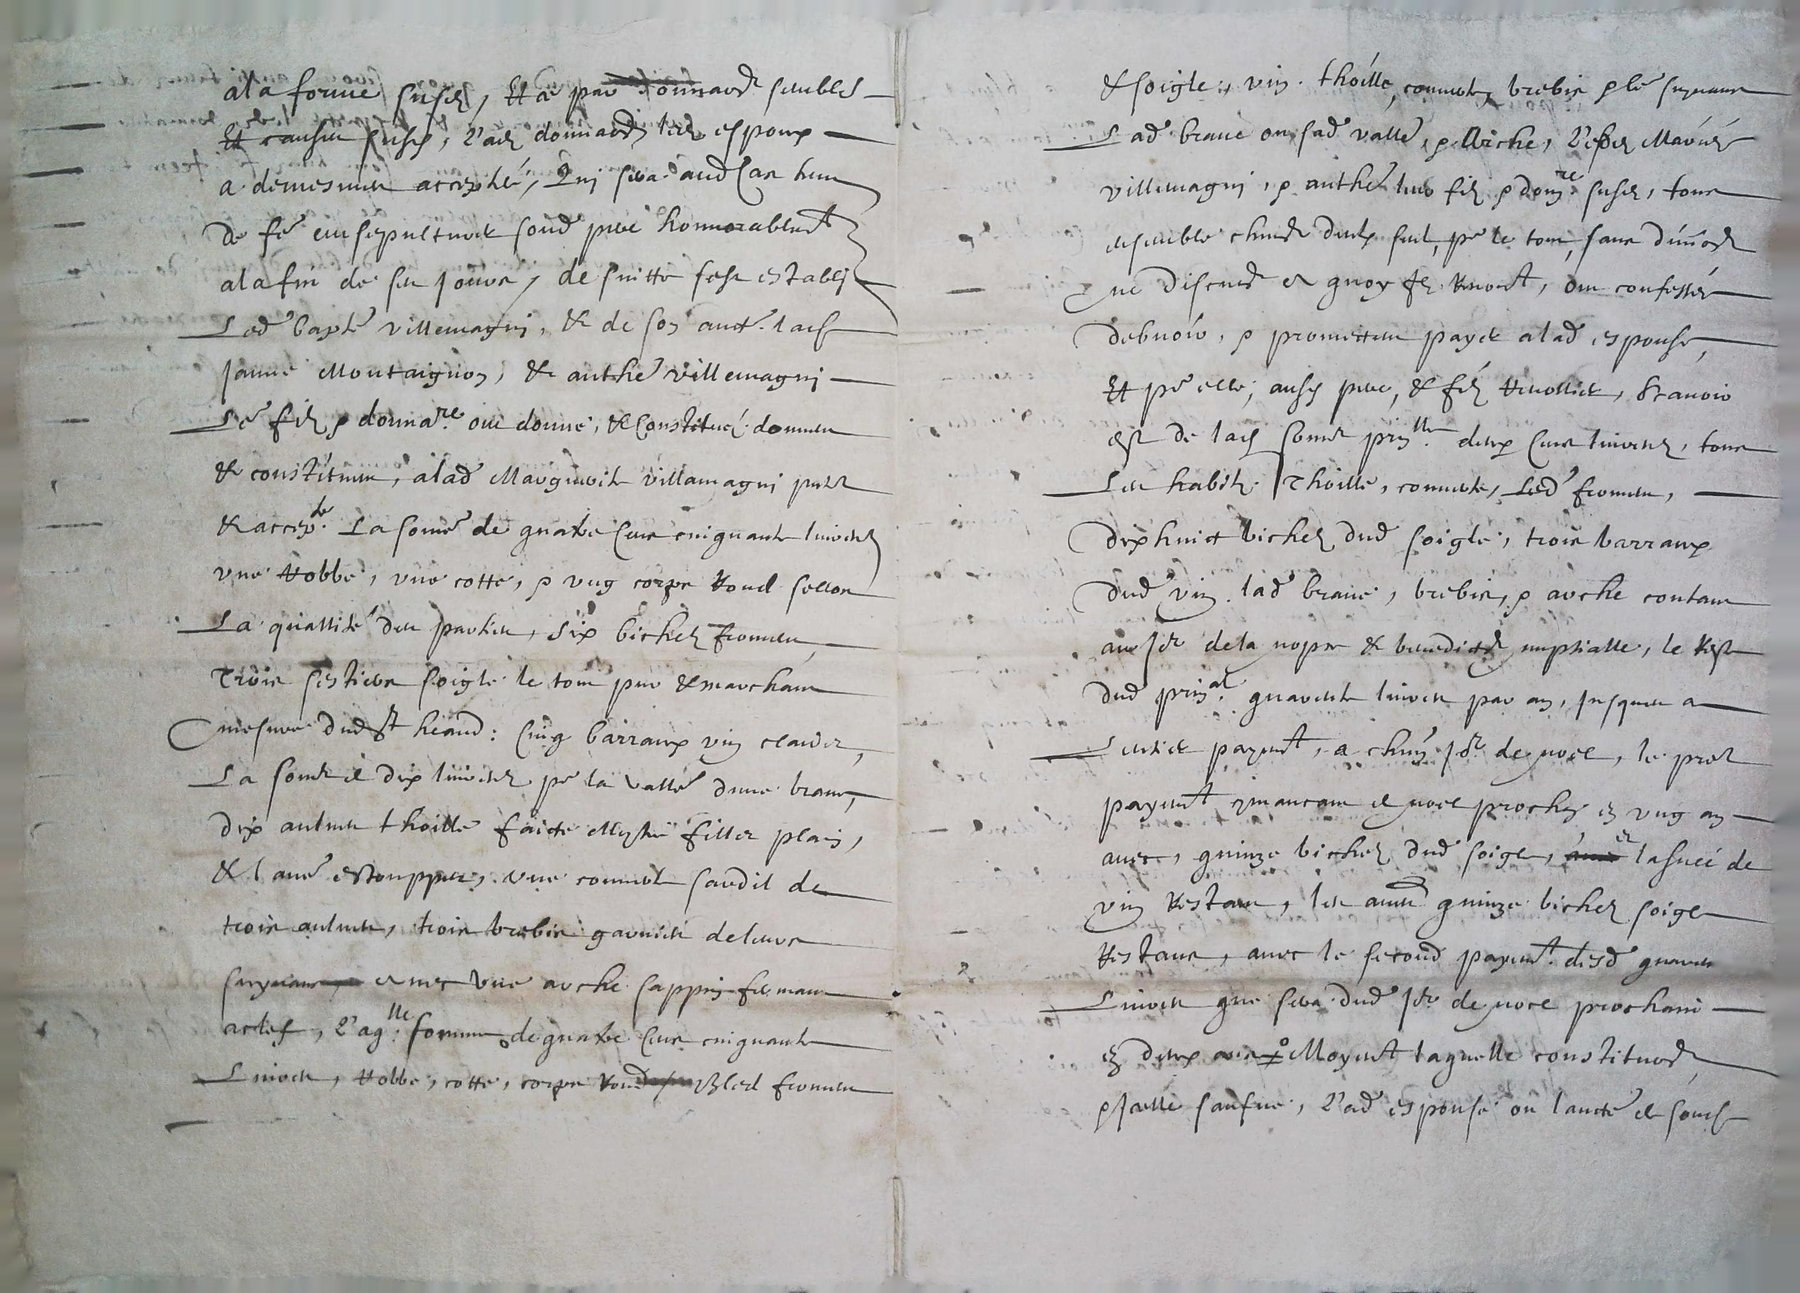 a la forme susd, et a par donnaon semble
et causes susd, l'ad donnaon led espoux
a demesmes accepté, qui sera aud cas tenu
de fe ensepulturer sond pere honnorablemt
a la fin de ses jours, de suitte sest estably
Led Capte Villemagni, & de son aucte lad
Janne Montaignon, & anthe Villemagni
Le filz & donnare ont donné, & constitué donnent
& constituent, a lad Marguerite Villamagni pnte
& accepte La some de quatre cens cinquante livres
une robbe, une cotte, & ung corps rond sellon
La quallité des parties, six bichetz froment
Trois sestiers soigle le tout pur & marchant
mesure dud St heand: cinq barraux vin clairet,
La some de dix livres pr la valle dune brane,
dix aulnes thoille faicte moytie fillet plain,
& l'autre estouppes, une couverte sardil de
trois aulnes, trois brebis garnies de leurs
suyvans avec une arche sappin fermant
a clef, l'aqlle somme de quatre cens cinquante
Livres, robbe, cotte, corps rond bled froment
& soigle, vin, thoille, couverte, brebis & le suyvans
Lad brane ou sad valle, & arche, l'esd mariés
Villemagni, & anthe leur filz & donre susd, tous
ensemble chung deulx seul, pr le tout, sans division
ne discution & quoy ilz renont, ont confessé
debvoir, & promettent payer a lad espouse,
et pr elle, aussy pere, & filz Revollier, scavoir
est de lad some prinlle deux cens livres, tous
Les habitz, thoille, couverte, Led froment,
dixhuict bichetz dud soigle, trois barraux
dud vin lad brane, brebis, & arche contant
au jor de la nopce & benediction nuptialle, le rest
dud prinal quarente livres par an, jusques a
Entier paymt, a chun jor de noel, le prer
paymt commancant de noel prochain en ung an
avec, quinze bichetz dud soigle, et lasnee de
vin restant, les autres quinze bichetz soigle
restans, avec le second paymt desd quarente
Livres que sera dud jor de noel prochain
en deux ans Moyent laquelle constituon,
& Jcelle saufve, l'ad espouse ou l'aucte de sond